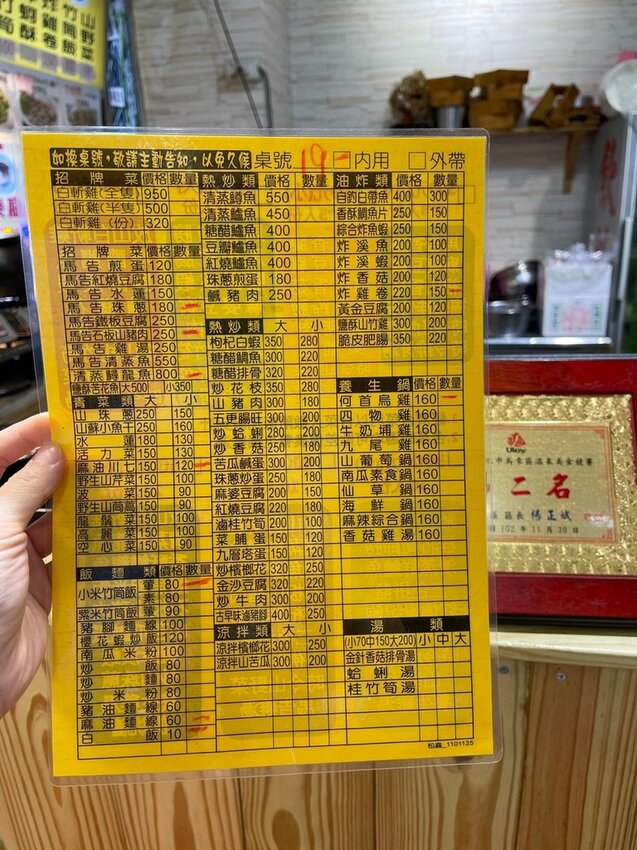 如換桌號，敬請主動告知，以免久候 桌號 19 內用 外帶
招牌菜 價格 數量
白斬雞(全隻) 950
白斬雞(半隻) 500
白斬雞(份) 320
招牌菜 價格 數量
馬告煎蛋 120
馬告紅燒豆腐 180
馬告水蓮 150
馬告珠蔥 180
馬告鐵板豆腐 250
馬告石板山豬肉 250
馬告雞湯 250
馬告清蒸魚 550
清蒸鱘龍魚 800
鹽酥苦花魚 大500 小350
青菜類 大 小
山珠蔥 250 150
山蘇小魚干 250 160
水蓮 180 130
活力菜 150 130
麻油川七 150 120
野生山芹菜 150 100
波菜 150 90
野生山茼萵 150 90
龍鬚菜 150 100
高麗菜 150 100
空心菜 150 90
飯麵類 價格 數量
小米竹筒飯 葷 80
素 80
紫米竹筒飯 葷 90
豬腳麵線 100
櫻花蝦炒飯 120
南瓜米粉 100
炒飯 80
炒麵 80
炒米粉 80
豬油麵線 60
麻油麵線 60
白飯 10
熱炒類 價格 數量
清蒸鱒魚 550
清蒸鱸魚 450
糖醋鱸魚 400
豆瓣鱸魚 400
紅燒鱸魚 400
珠蔥煎蛋 180
鹹豬肉 250
熱炒類 大 小
枸杞白蝦 350 280
糖醋鯛魚 300 220
糖醋排骨 320 220
炒花枝 350 280
山豬肉 300 200
五更腸旺 300 200
炒蛤蜊 280 200
炒香菇 250 180
苦瓜鹹蛋 300 200
珠蔥炒蛋 250 180
麻婆豆腐 200 150
紅燒豆腐 220 180
滷桂竹筍 200 100
菜脯蛋 150 120
九層塔蛋 150 120
炒檳榔花 320 250
金沙豆腐 320 220
炒牛肉 300 200
古早味滷豬腳 400 250
涼拌類 大 小
涼拌檳榔花 300 250
涼拌山苦瓜 300 200
油炸類 價格 數量
白釣白帶魚 400 300
香酥鯛魚片 250 150
綜合炸魚蝦 250 150
炸溪魚 200 100
炸溪蝦 200 100
炸香菇 200 120
炸雞卷 220 150
黃金豆腐 200 120
鹽酥山竹雞 300 200
脆皮肥腸 350 220
養生鍋 價格 數量
何首烏雞 160
四物雞 160
牛奶埔雞 160
九尾雞 160
山葡萄鍋 160
南瓜素食鍋 160
仙草鍋 160
海鮮鍋 160
麻辣綜合鍋 160
香菇雞湯 160
湯類
(小70中150大200) 小 中 大
金針香菇排骨湯
蛤蜊湯
桂竹筍湯
松鑫_1101125
Ulay
市烏來區溫泉美食競賽
二名
區區長 楊正斌
102年11月30日